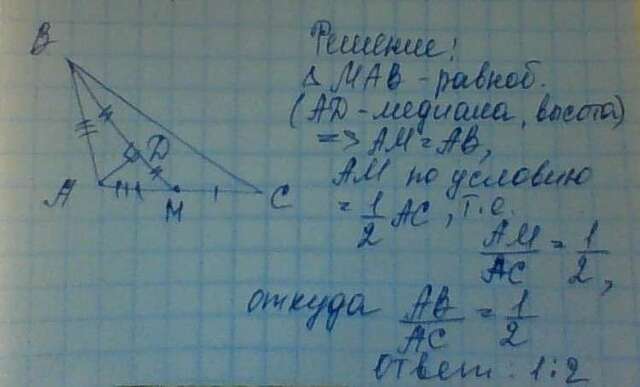 B
A
D
M
C
Решение:
Δ MAB - равноб.
(AD - медиана, высота)
=> AM = AB,
AM по условию
= 1/2 AC, т.о.
AM/AC = 1/2,
откуда AB/AC = 1/2
Ответ: 1:2